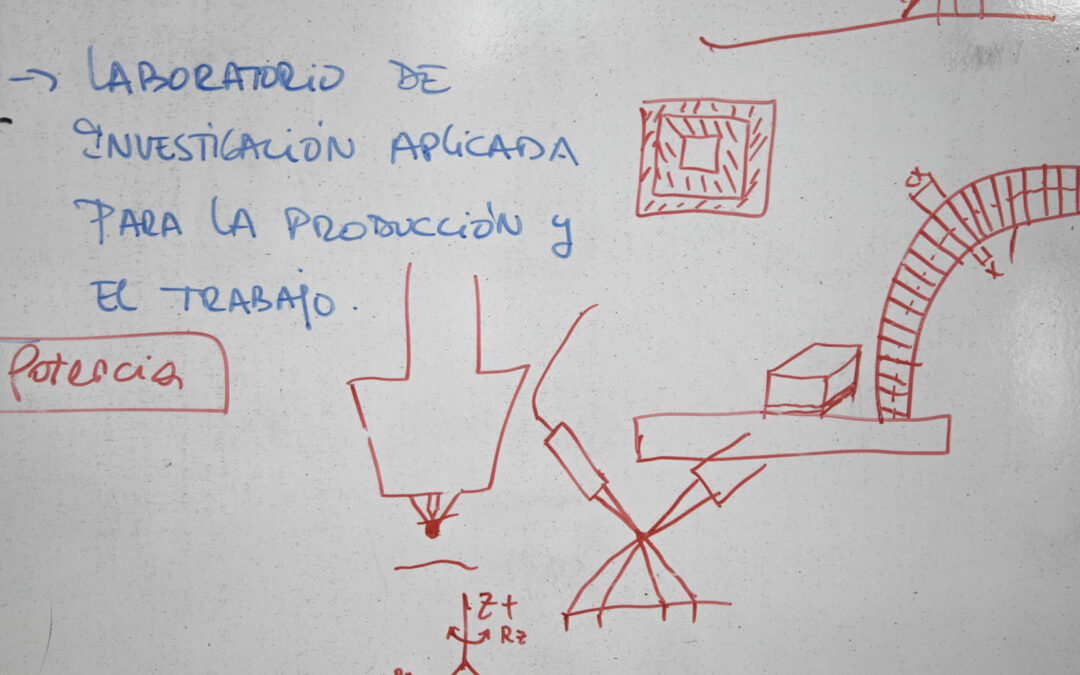 → LABORATORIO DE
INVESTIGACIÓN APLICADA
PARA LA PRODUCCIÓN y
EL TRABAJO.
Potencia
α
x
Z+
Rz